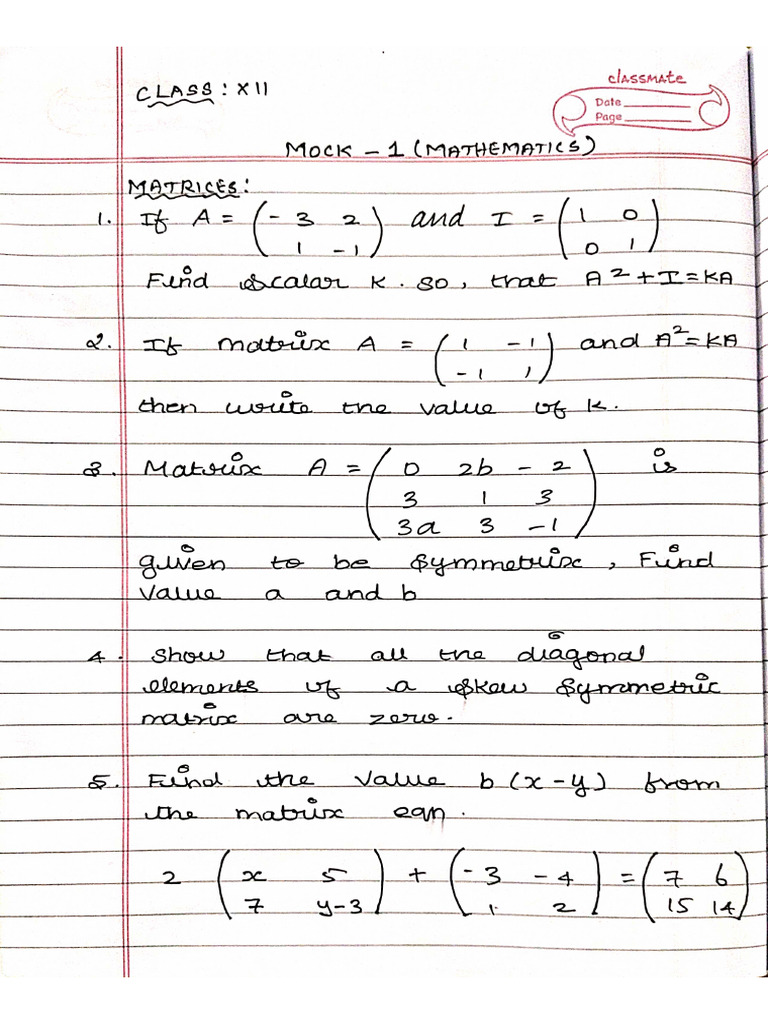 classmate
CLASS : XII
Date
Page
MOCK - 1 (MATHEMATICS)
MATRICES:
1. If A = ( -3 2 ) and I = ( 1 0 )
1 -1 0 1
Find scalar K. so, that A² + I = KA
2. If matrix A = ( 1 -1 ) and A² = KA
-1 1
then write the value of K.
3. Matrix A = ( 0 2b -2 ) is
3 1 3
3a 3 -1
given to be symmetrix, Find
value a and b
4. Show that all the diagonal
elements of a skew symmetric
matrix are zero.
5. Find the value b (x-y) from
the matrix eqn.
2 ( x 5 ) + ( -3 -4 ) = ( 7 6 )
7 y-3 1 2 15 14